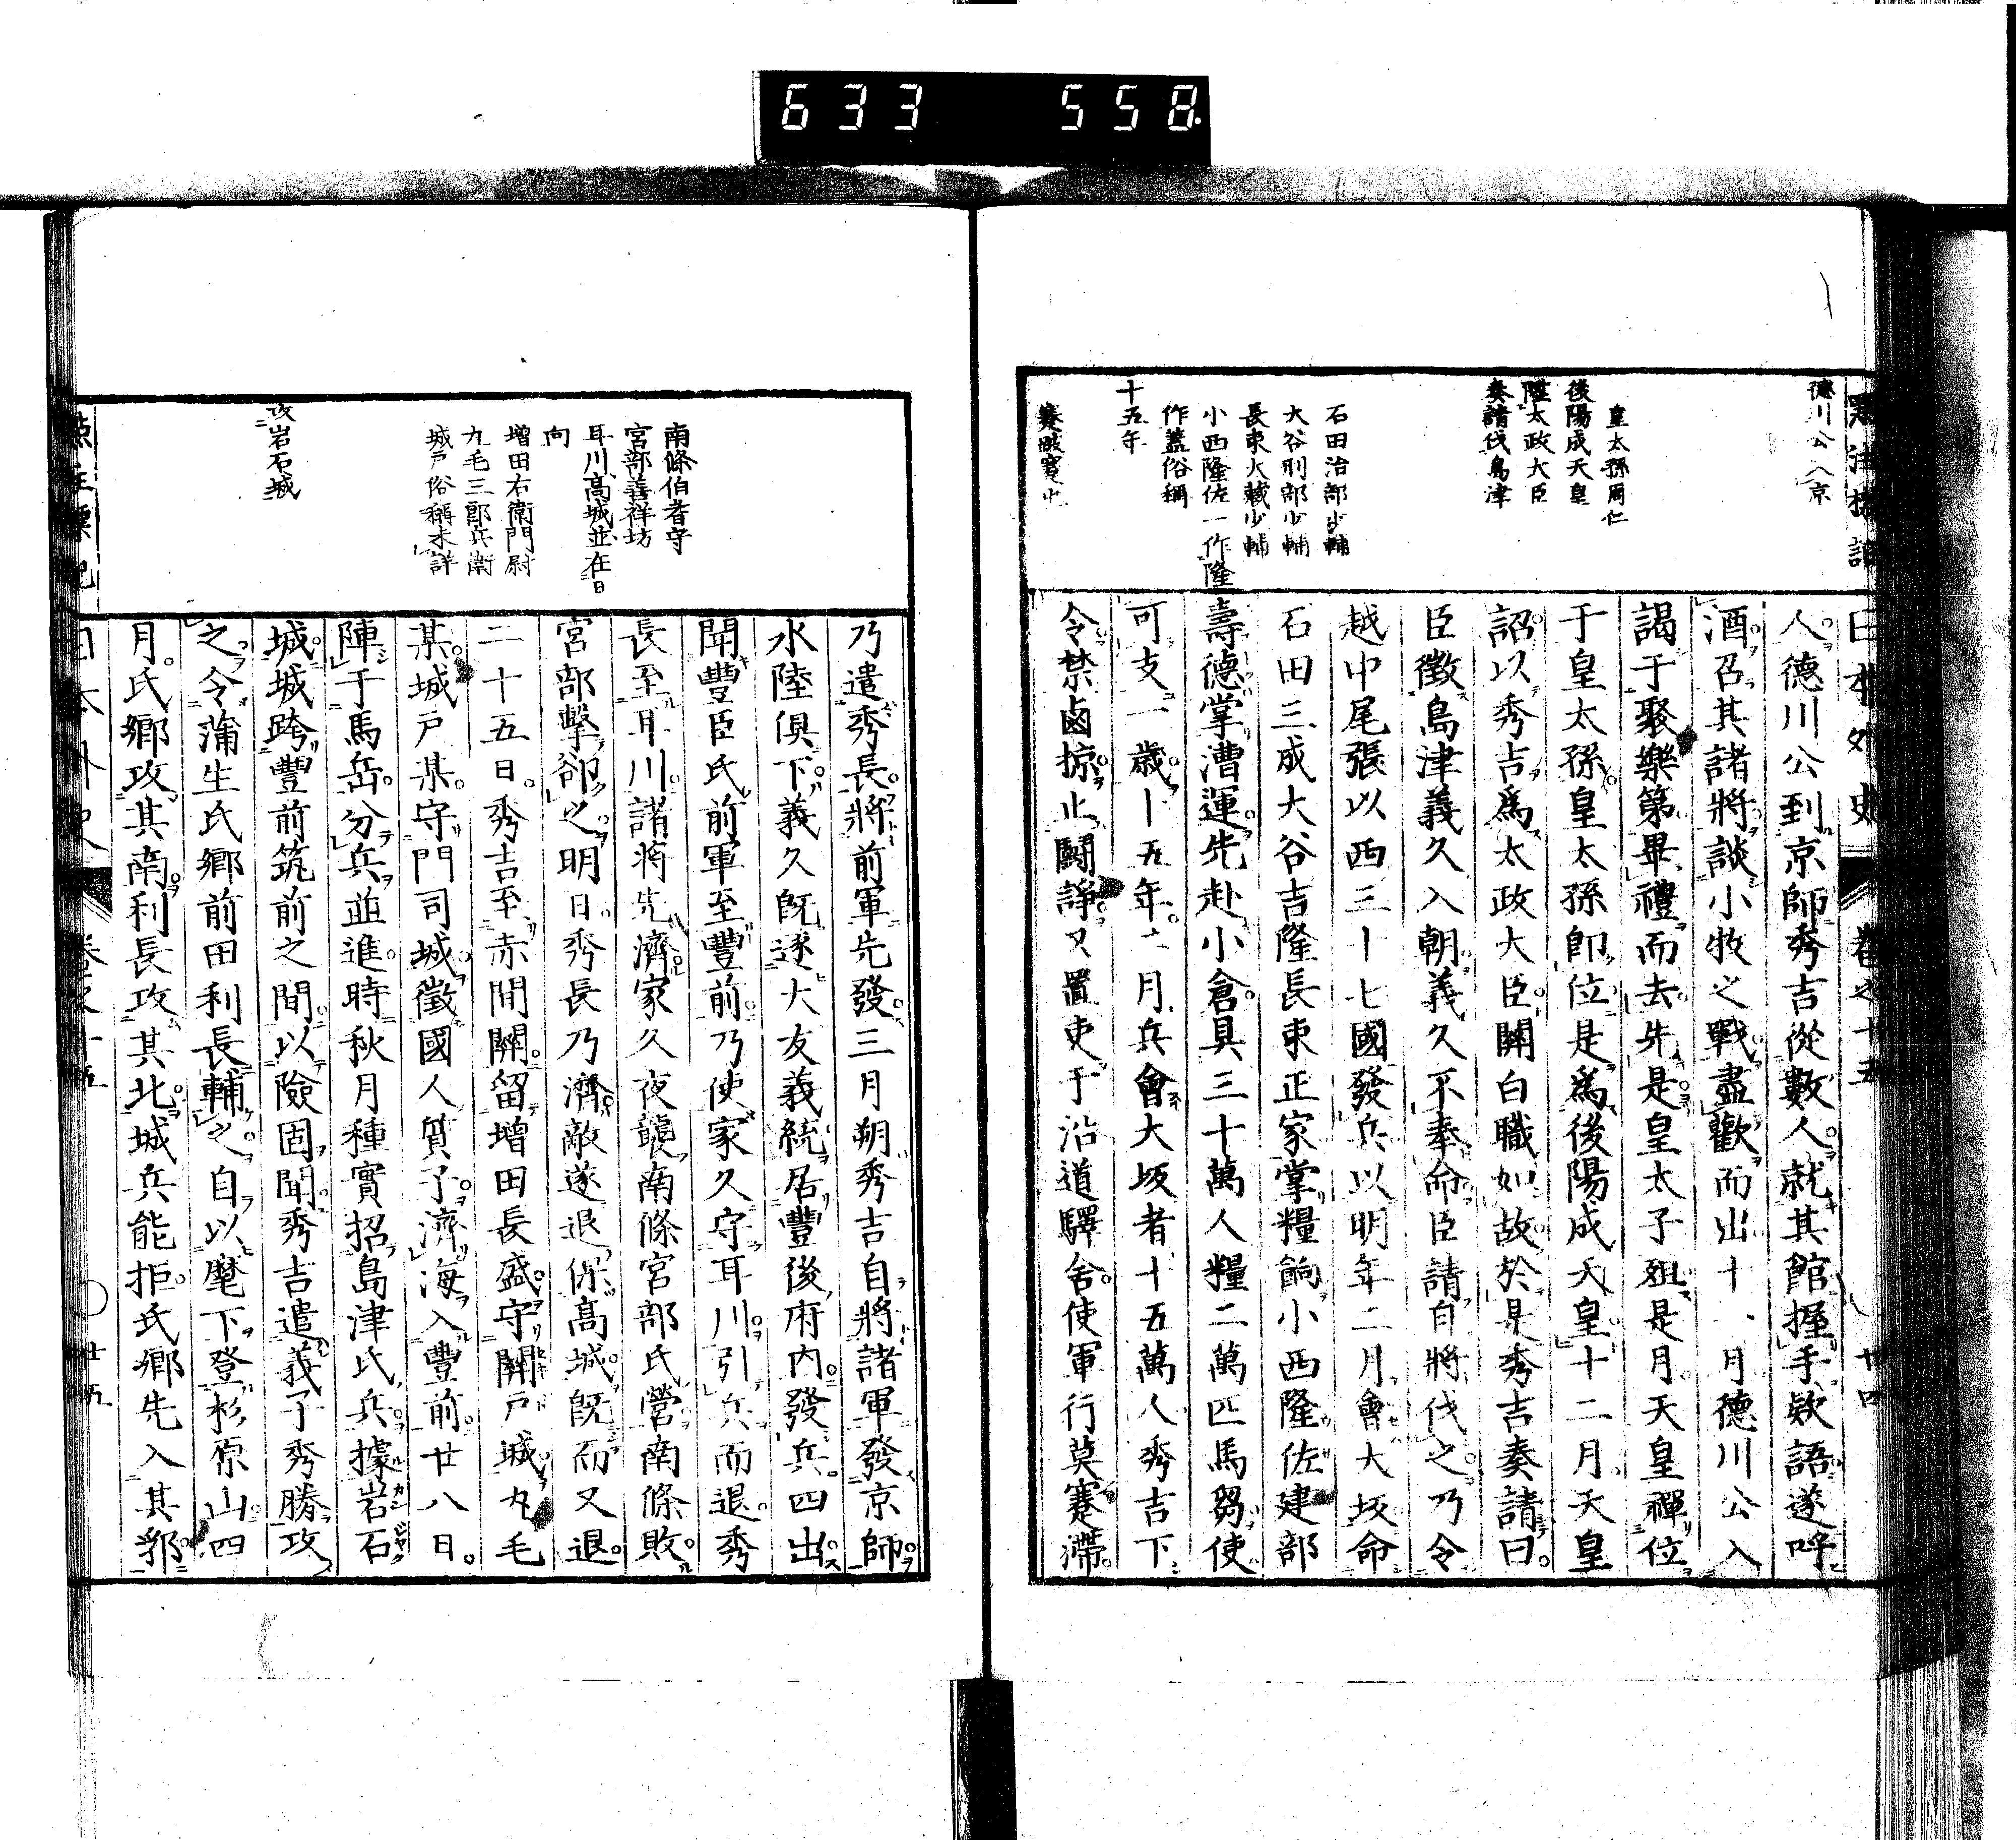 633 558
日本外史
卷之十五
廿四
德川公入京
皇太孫周仁
後陽成天皇
陞太政大臣
奏請伐島津
石田治部少輔
大谷刑部少輔
長束大藏少輔
小西隆佐一作隆
作蓋俗稱
十五年
人德川公到京師秀吉從數人就其館握手欵語遂呼
酒召其諸將談小牧之戰盡歡而出十一月德川公入
謁于聚樂第畢禮而去先是皇太子殂是月天皇禪位
于皇太孫皇太孫即位是爲後陽成天皇十二月天皇
詔以秀吉爲太政大臣關白職如故於是秀吉奏請曰
臣徵島津義久入朝義久不奉命臣請自將伐之乃令
越中尾張以西三十七國發兵以明年二月會大坂命
石田三成大谷吉隆長束正家掌糧餉小西隆佐建部
壽德掌漕運先赴小倉具三十萬人糧二萬匹馬芻使
可支一歲十五年二月兵會大坂者十五萬人秀吉下
令禁鹵掠止鬪諍又置吏于沿道驛舍使軍行莫蹇滯
南條伯耆守
宮部善祥坊
耳川高城並在日
向
増田右衛門尉
九毛三郎兵衛
城戸俗稱未詳
攻岩石城
乃遣秀長將前軍先發三月朔秀吉自將諸軍發京師
水陸俱下義久既逐大友義統居豐後府内發兵四出
聞豐臣氏前軍至豐前乃使家久守耳川引兵而退秀
長至耳川諸將先濟家久夜襲南條宮部氏營南條敗
宮部擊卻之明日秀長乃濟敵遂退保高城既而又退
二十五日秀吉至赤間關留增田長盛守關戸城九毛
某城戸某守門司城徵國人質子濟海入豐前廿八日
陣于馬岳分兵並進時秋月種實招島津氏兵據岩石
城城跨豐前筑前之間以險固聞秀吉遣義子秀勝攻
之令蒲生氏鄉前田利長輔之自以麾下登杉原山四
月氏鄉攻其南利長攻其北城兵能拒氏鄉先入其郛
日本外史
卷之十五
廿五